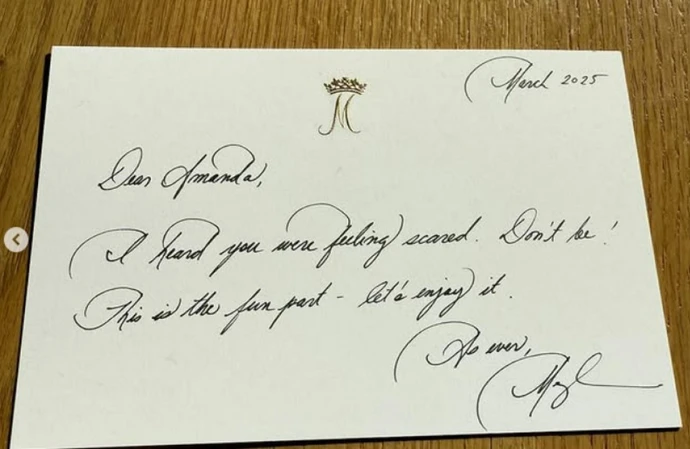 March 2025
M
Dear Amanda,
I heard you were feeling scared. Don't be!
This is the fun part - let's enjoy it.
As ever,